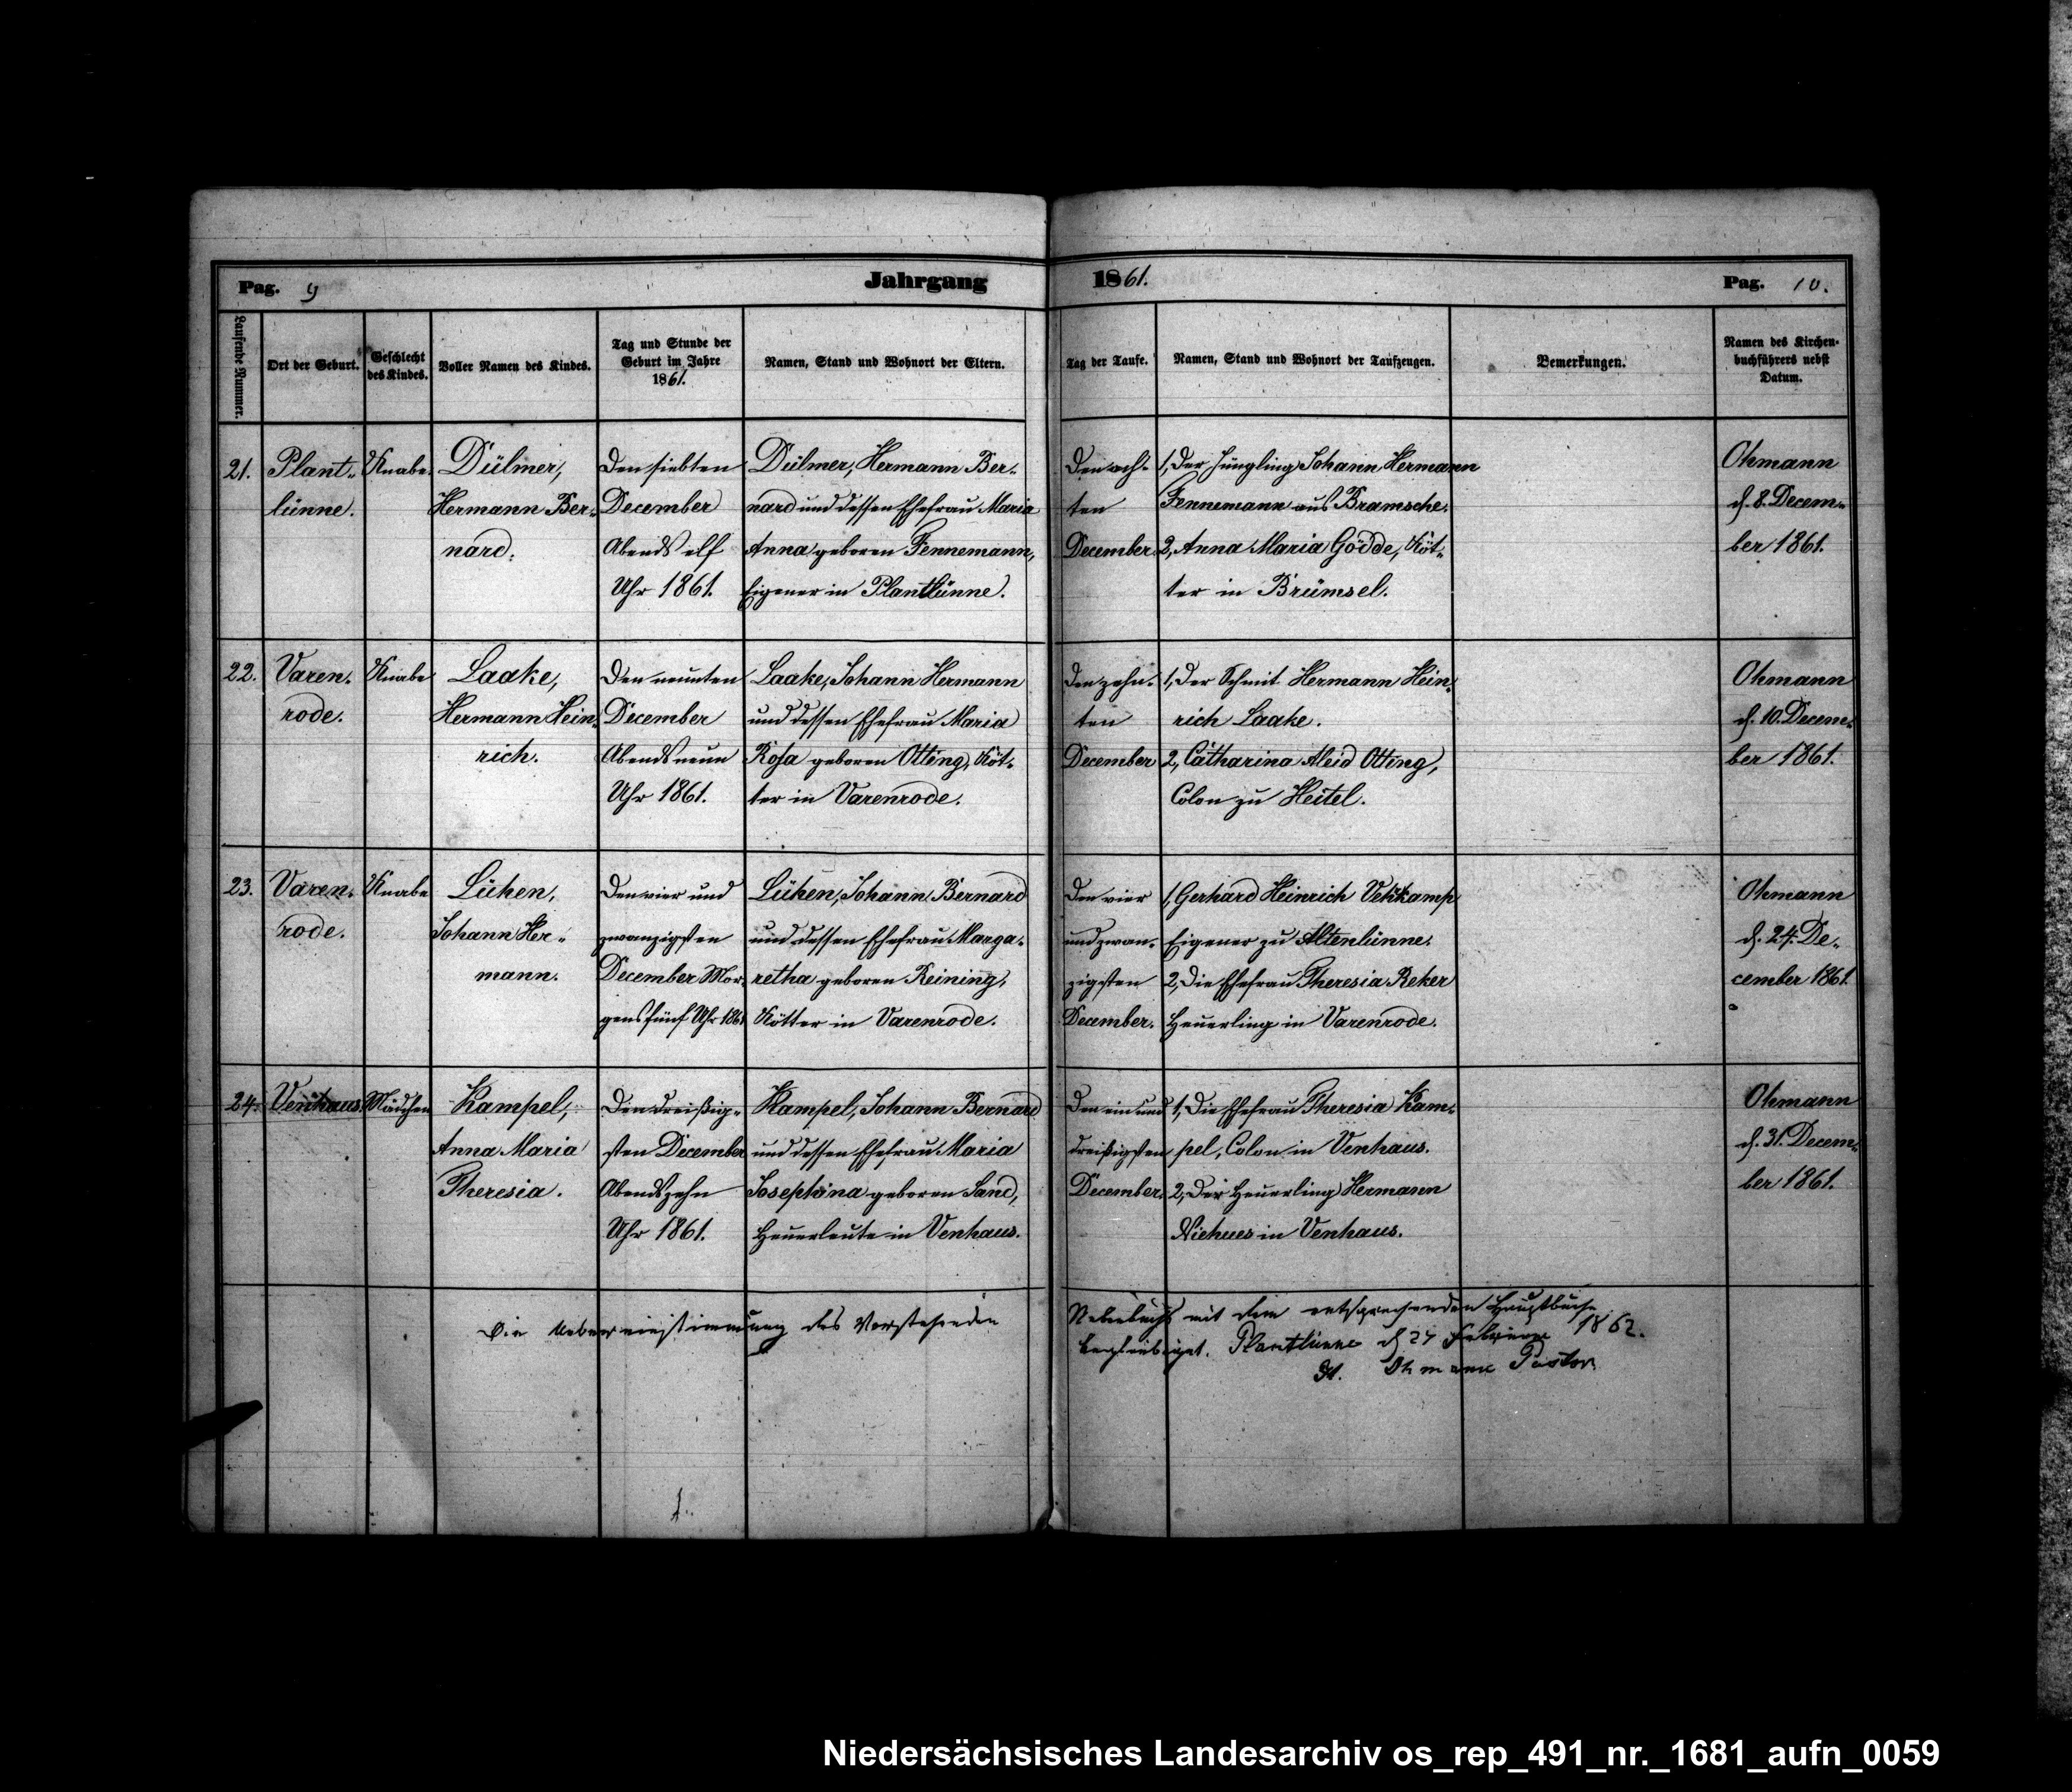 Pag. 9
Jahrgang
1861.
Pag. 10.
Laufende Nummer.
Ort der Geburt.
Geschlecht
des Kindes.
Voller Namen des Kindes.
Tag und Stunde der
Geburt im Jahre
1861.
Namen, Stand und Wohnort der Eltern.
Tag der Taufe.
Namen, Stand und Wohnort der Taufzeugen.
Bemerkungen.
Namen des Kirchen-
buchführers nebst
Datum.
21.
Plant-
lünne.
Knabe.
Dülmer,
Hermann Ber-
nard.
Den siebten
December
Abends elf
Uhr 1861.
Dülmer, Hermann Ber-
nard und dessen Ehefrau Maria
Anna geboren Fennemann,
Eigener in Plantlünne.
Den ach-
ten
December.
1, Der Jüngling Johann Hermann
Fennemann aus Bramsche.
2, Anna Maria Gödde, Köt-
ter in Brümsel.
Ohmann
d. 8. Decem-
ber 1861.
22.
Varen-
rode.
Knabe
Laake,
Hermann Hein-
rich.
Den neunten
December
Abends neun
Uhr 1861.
Laake, Johann Hermann
und dessen Ehefrau Maria
Rosa geboren Otting, Köt-
ter in Varenrode.
Den zehn-
ten
December
1, Der Schmit Hermann Hein-
rich Laake.
2, Catharina Aleid Otting,
Colon zu Heitel.
Ohmann
d. 10. Decem-
ber 1861.
23.
Varen-
rode.
Knabe
Lühen,
Johann Her-
mann.
Den vier und
zwanzigsten
December Mor-
gens fünf Uhr 1861
Lühen, Johann Bernard
und dessen Ehefrau Marga-
retha geboren Reining,
Kötter in Varenrode.
Den vier
und zwan-
zigsten
December.
1, Gerhard Heinrich
Eigener zu Altenlünne.
2, Die Ehefrau Theresia Reker
Heuerling in Varenrode.
Ohmann
d. 24. De-
cember 1861.
24.
Venhaus.
Mädchen
Kampel,
Anna Maria
Theresia.
Den dreißig-
sten December
Abends zehn
Uhr 1861.
Kampel, Johann Bernard
und dessen Ehefrau Maria
Josephina geboren Sand,
Heuerleute in Venhaus.
Den ein und
dreißigsten
December.
1, Die Ehefrau Theresia Kam-
pel, Colon in Venhaus.
2, Der Heuerling Hermann
Niehues in Venhaus.
Ohmann
d. 31. Decem-
ber 1861.
Die Uebereinstimmung des Vorstehenden
Nebenbuchs mit dem entsprechenden Hauptbuche
beglaubiget. Plantlünne d. 27 Februar 1862.
Ohmann Pastor
Niedersächsisches Landesarchiv os_rep_491_nr._1681_aufn_0059